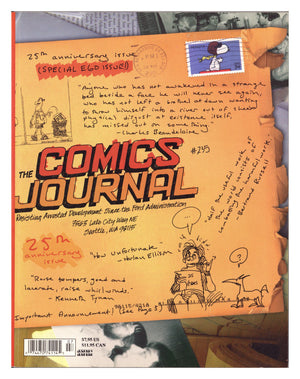 25th anniversary issue
(SPECIAL EGO ISSUE!)
"Anyone who has not awakened in a strange
bed beside a face he will never see again,
who has not left a brothel at dawn wanting
to throw himself into a river out of sheer
physical disgust at existence, itself,
has missed out on something."
-Charles Beaudelaire
#293
THE
COMICS
JOURNAL
Resisting Arrested Development Since the Ford Administration
7563 Lake City Way NE
Seattle, WA 98115
25th
anniversary
issue
"How Unfortunate."
-Harlan Ellison
work
Bertrand Russell
"Raise tempers, goad and
lacerate, raise whirlwinds."
- Kenneth Tynan
Important Announcement! (see Page 5)
$7.95 US
$11.95 CAN